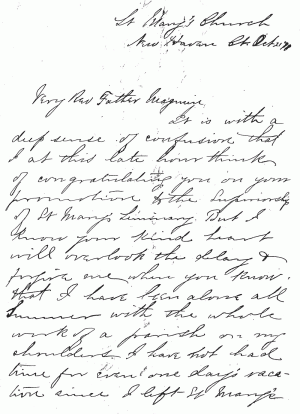 St Mary's Church
New Haven Ct. Oct
Very Rev Father Magnien
It is with a
deep sense of confusion that
I at this late hour think
of congratulating you on your
promotion to the Superiorship
of St Mary's Seminary. But I
know your kind heart
will overlook the delay &
forgive me when you know
that I have been alone all
summer with the whole
work of a parish on my
shoulders. I have not had
time for even one day's vaca-
tion since I left St Mary's